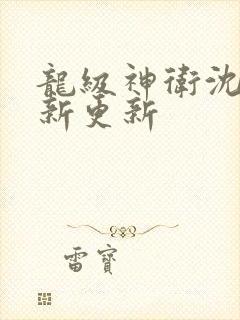 龍級神衛沈
新更新
雷寶